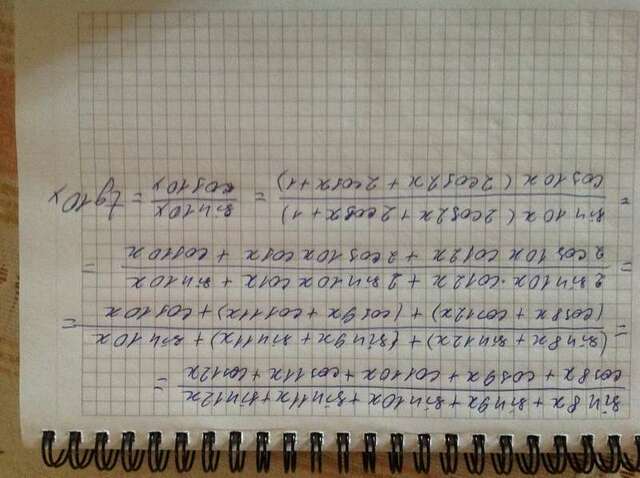 sin 8x + sin 9x + sin 10x + sin 11x + sin 12x
cos 8x + cos 9x + cos 10x + cos 11x + cos 12x =
= (sin 8x + sin 12x) + (sin 9x + sin 11x) + sin 10x
(cos 8x + cos 12x) + (cos 9x + cos 11x) + cos 10x =
= 2 sin 10x · cos 2x + 2 sin 10x cos x + sin 10x
2 cos 10x cos 2x + 2 cos 10x cos x + cos 10x =
= sin 10x (2 cos 2x + 2 cos x + 1)
cos 10x (2 cos 2x + 2 cos x + 1) = sin 10x / cos 10x = tg 10x